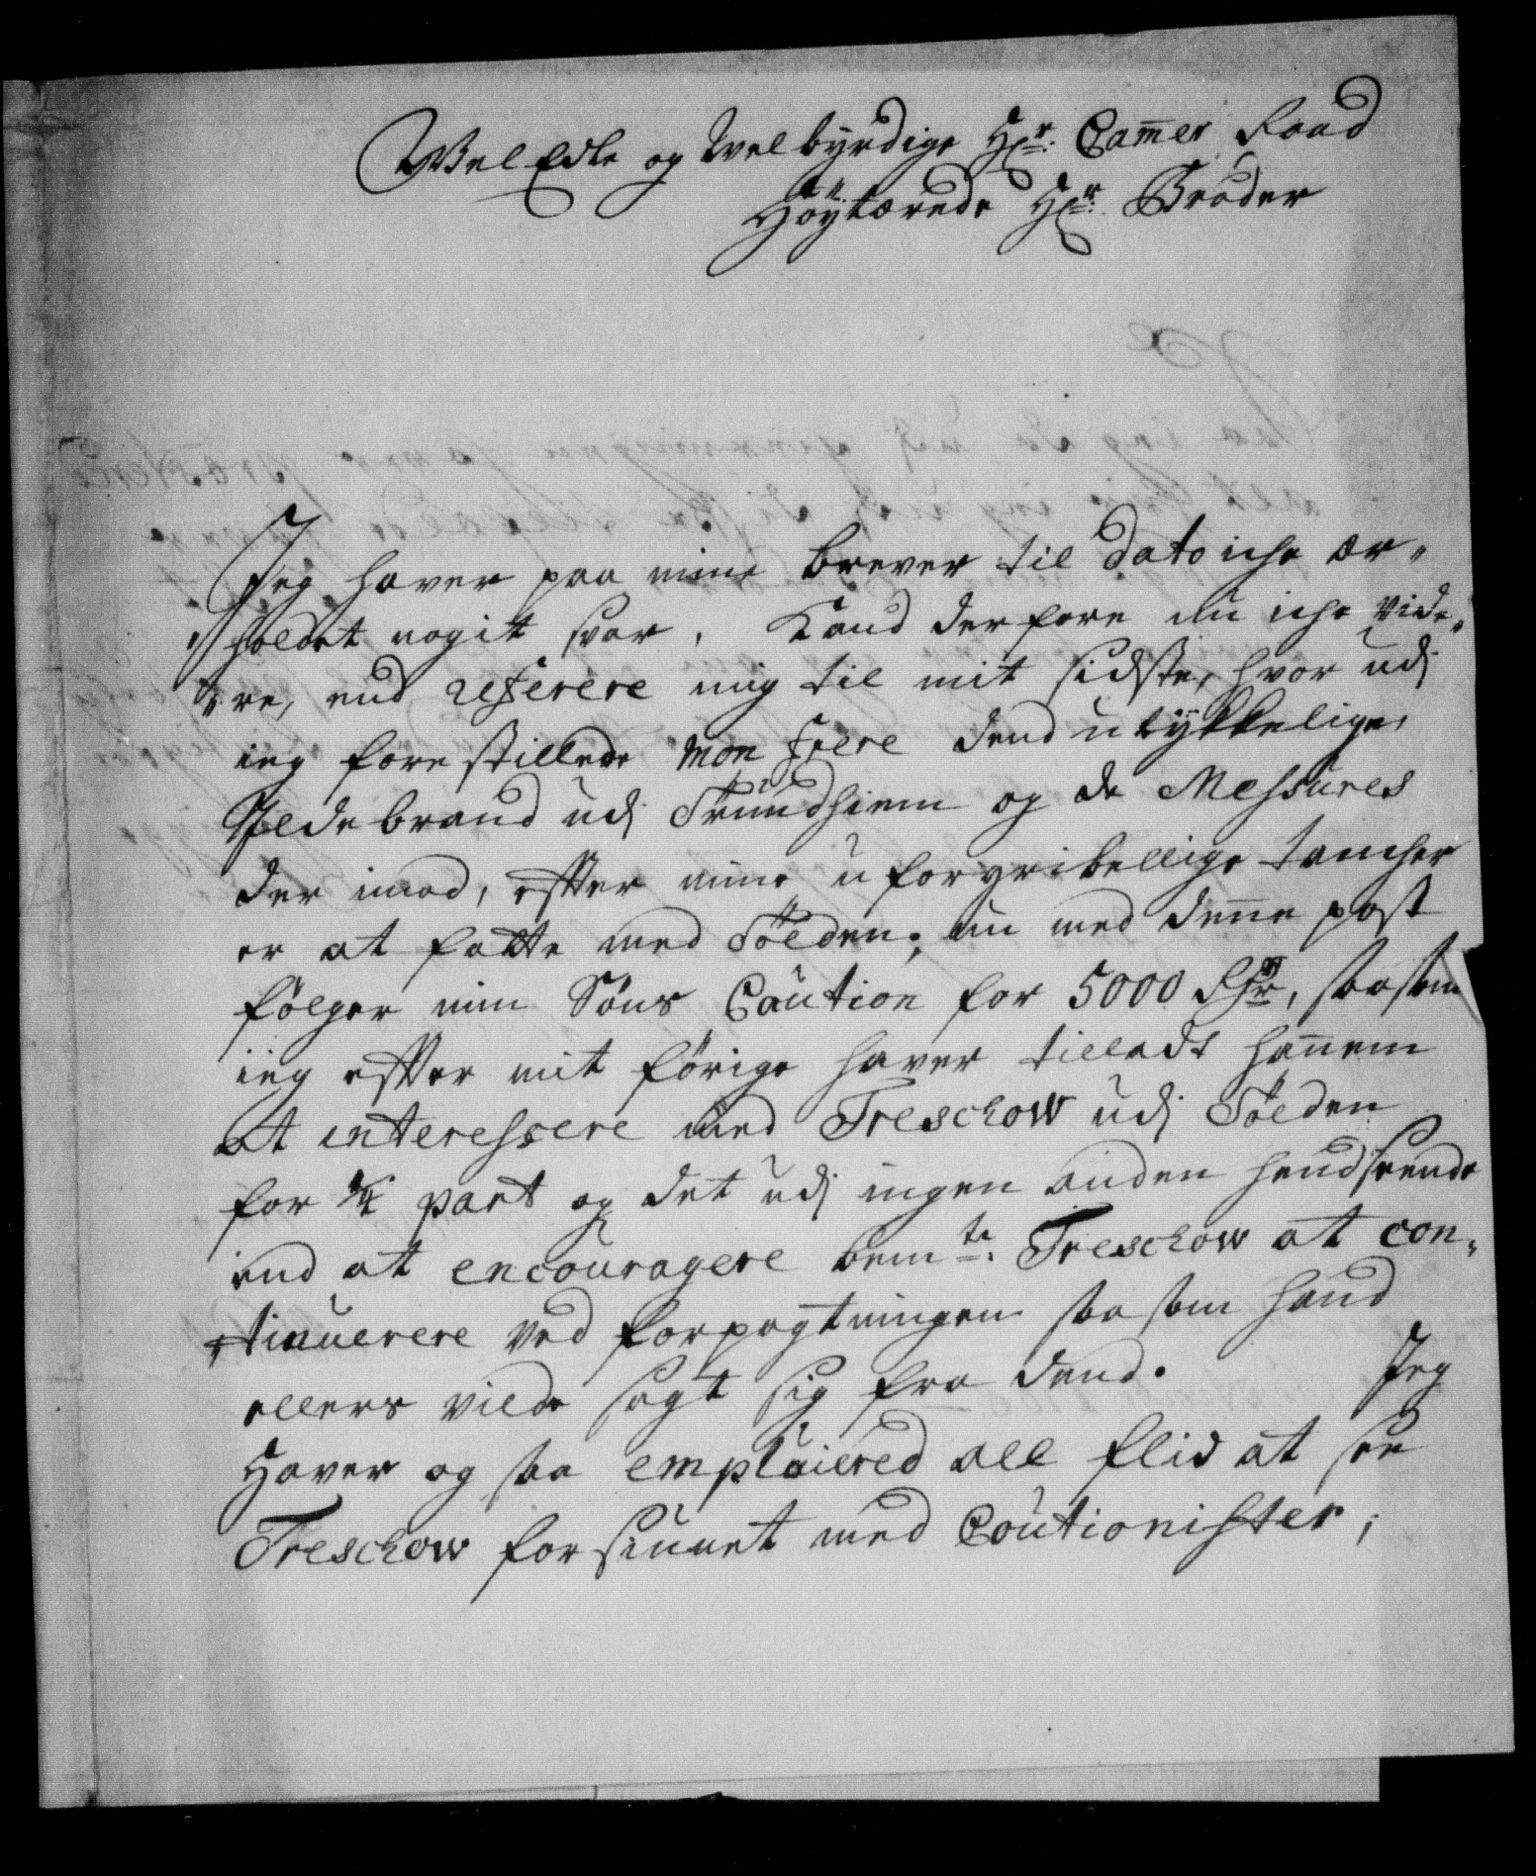 WelEdle og Velbyrdige Hr: Cammer Raad
Høÿtærede Hr: Broder
Jeg hafver paa mine brever til dato iche er„
„holdet nogit svar, Kand derfore nu iche vide„
„re, end referere mig til mit sidste, hvor udj
ieg forestillede Mon frere dend ulÿkkelige
Ildebrand udj Trundhiem og de Messures
der imod, efter mine uforgribellige tancher
er at fatte med Tölden; nu med denne post
følger min Søns Caution for 5000 Rdr, saasom
ieg efter mit forige haver tilladt hannem
at interessere med Treschow udj Tölden
for 1/4 part og det udj ingen anden hendseende
end at encouragere bemte: Treschow at con„
„tinuerere ved forpagtningen saasom hand
ellers vilde sagt sig fra dend. Jeg
Haver og saa emploiered all flid at see
Treschow forsiunet med Coutionister;